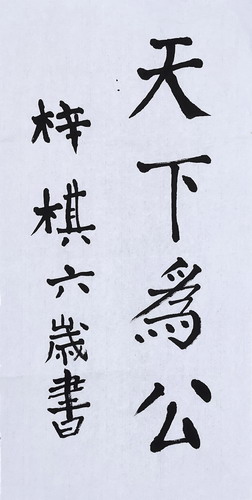 天下為公
梓棋六歲書